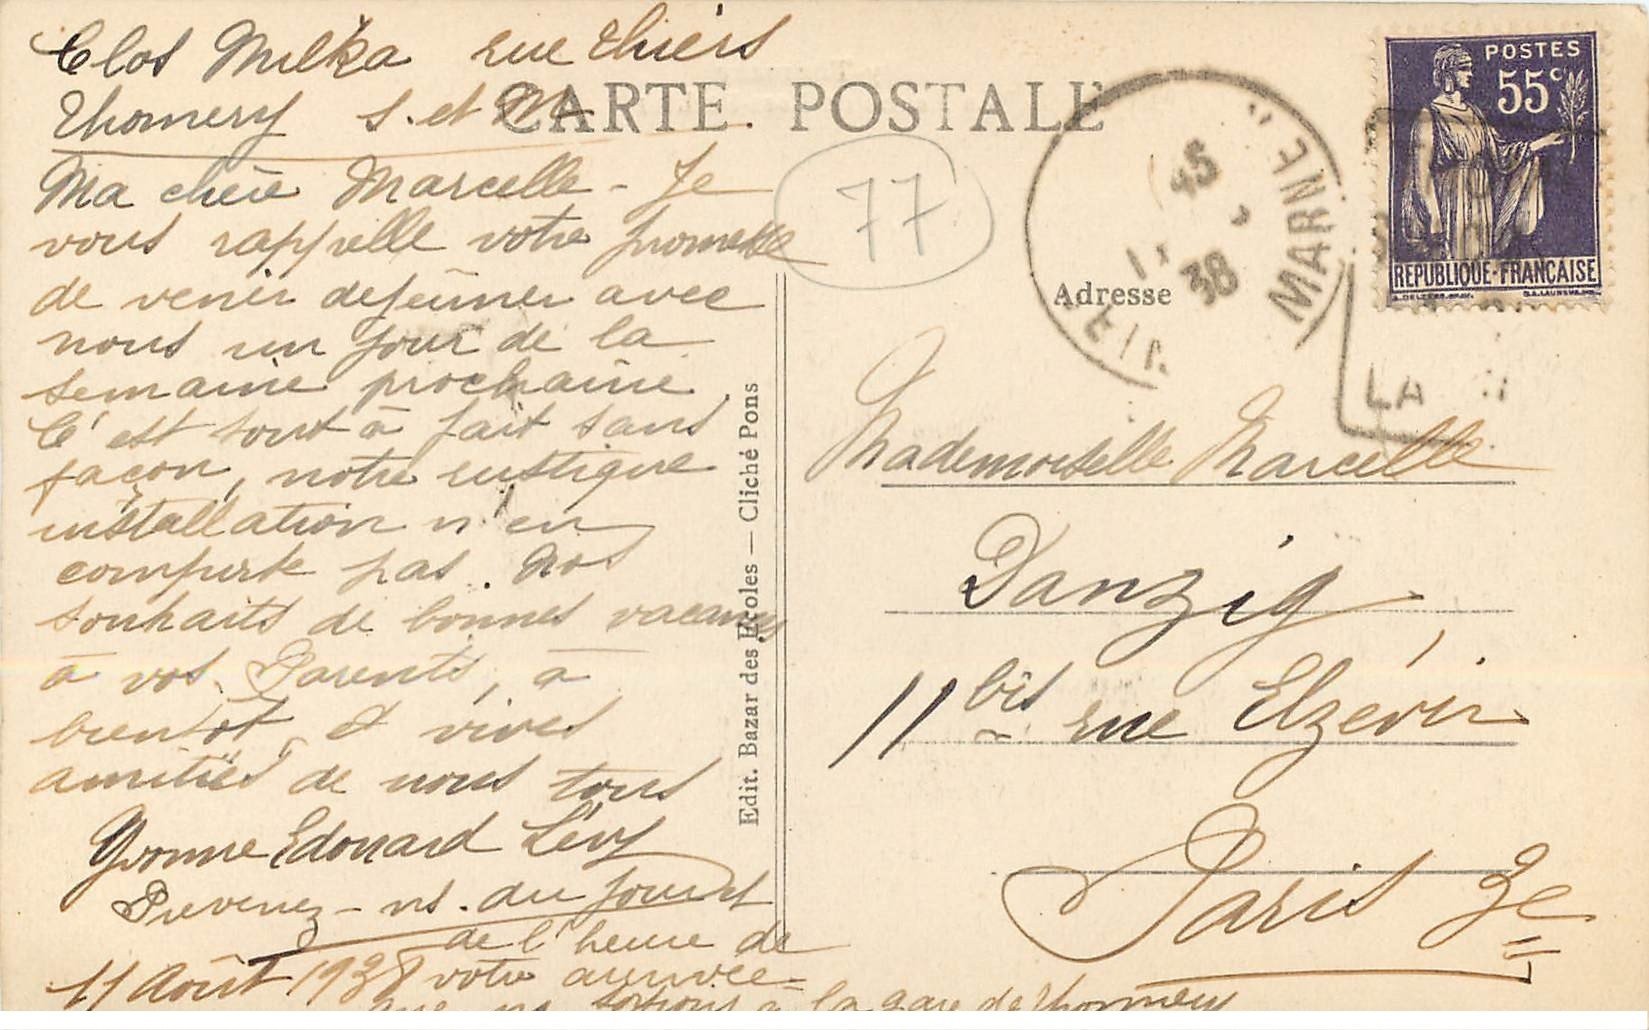 Clos Milka rue Thiers
Thomery S. et M.
Ma chère Marcelle - Je
vous rappelle votre promesse
de venir dejeuner avec
nous un jour de la
semaine prochaine.
C'est tout à fait sans
façon, notre rustique
installation n'en
comporte pas. Nos
souhaits de bonnes vacances
à vos Parents, à
bientôt, et vives
amitiés de nous tous
Yvonne Edouard Lévy
Prevenez - ns. du jour et
de l'heure de
11 Août 1938 votre arrivée =
que ns soyions à la gare de Thomery
CARTE POSTALE
77
Adresse
Edit. Bazar des Ecoles — Cliché Pons
Mademoiselle Marcelle
Danzig,
11 bis rue Elzévir
Paris 3e
POSTES
55c
REPUBLIQUE-FRANÇAISE
45
38
MARNE
LA